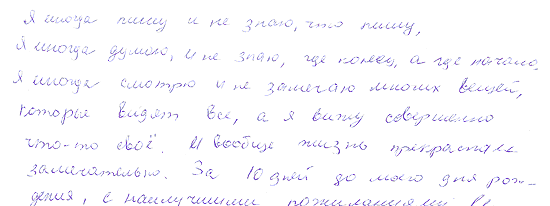 Я иногда пишу и не знаю, что пишу,
Я иногда думаю, и не знаю, где конец, а где начало,
Я иногда смотрю и не замечаю многих вещей,
которые видят все, а я вижу совершенно
что-то своё. И вообще жизнь прекрасна и
замечательно. За 10 дней до моего дня рож-
дения, с наилучшими пожеланиями